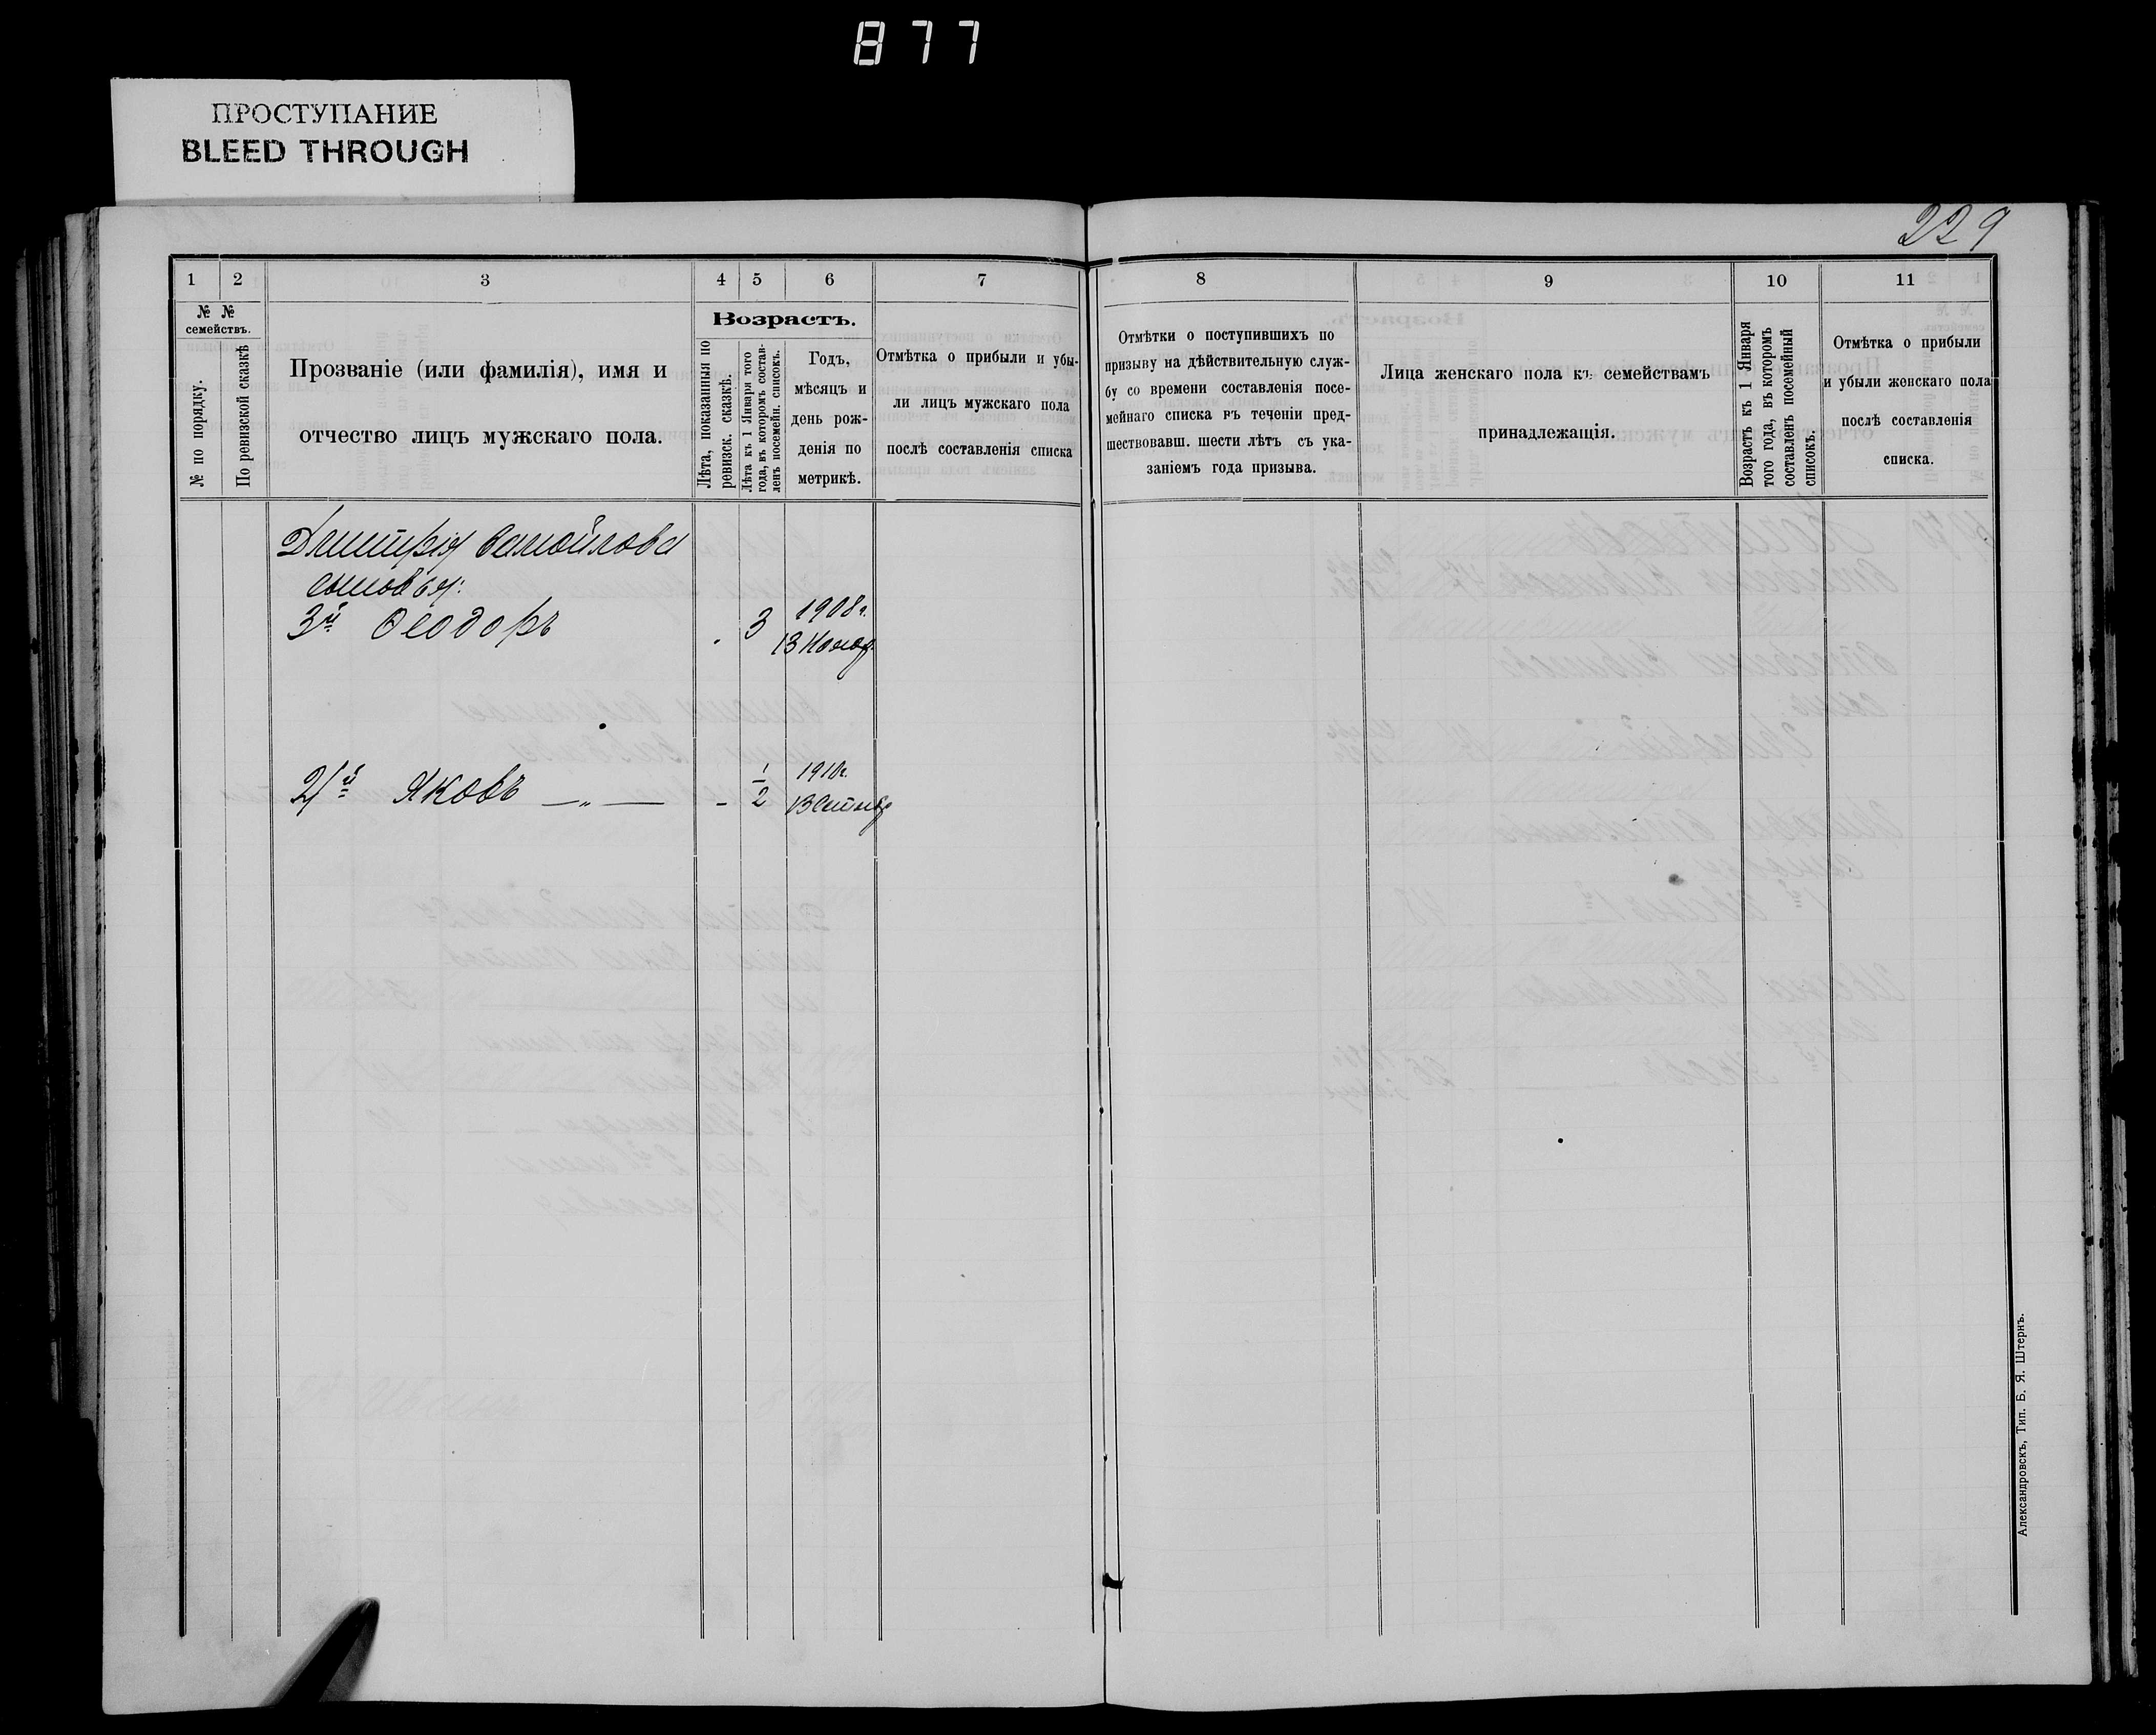 877
ПРОСТУПАНИЕ
BLEED THROUGH
229
1
2
3
4
5
6
7
8
9
10
11
№ №
семействъ.
№ по порядку.
По ревизской сказкѣ
Прозваніе (или фамилія), имя и
отчество лицъ мужскаго пола.
Возрастъ.
Лѣта, показанныя по
ревизск. сказкѣ.
Лѣта къ 1 Января того
года, въ которомъ состав-
ленъ посемейн. списокъ.
Годъ,
мѣсяцъ и
день рож-
денія по
метрикѣ.
Отмѣтка о прибыли и убы-
ли лицъ мужскаго пола
послѣ составленія списка
Отмѣтки о поступившихъ по
призыву на дѣйствительную служ-
бу со времени составленія посе-
мейнаго списка въ теченіи пред-
шествовавш. шести лѣтъ съ ука-
заніемъ года призыва.
Лица женскаго пола къ семействамъ
принадлежащія.
Возрастъ къ 1 Января
того года, въ которомъ
составленъ посемейный
списокъ.
Отмѣтка о прибыли
и убыли женскаго пола
послѣ составленія
списка.
Дмитрія Самойлова
сыновья:
3й Ѳеодоръ 3 1908г.
13 Нояб.
Яковъ — „ — - 1/2 1910г.
13 Октябр
Александровскъ, Тип. Б. Я. Штернъ.